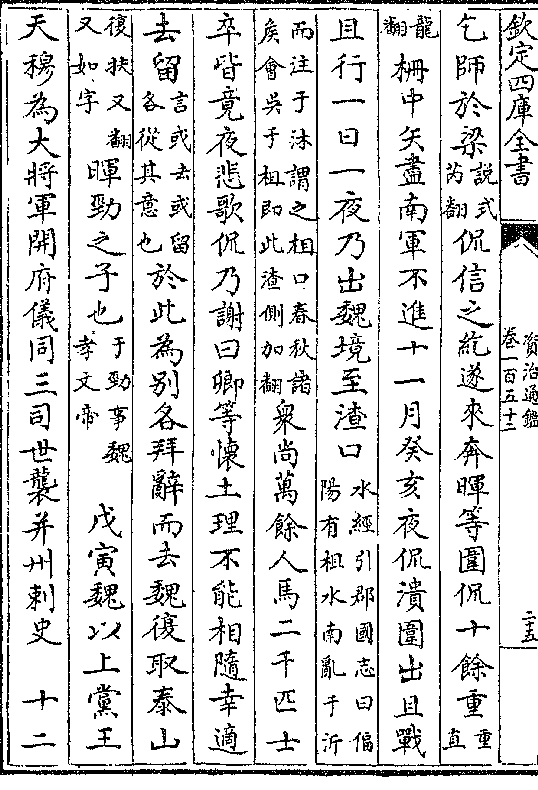 欽定四庫全書
資治通鑑
卷一百五十二
二十五
乞師於梁説式芮翻侃信之紇遂來奔暉等圍侃十餘重重直
龍翻柵中矢盡南軍不進十一月癸亥夜侃潰圍出且戰
且行一日一夜乃出魏境至渣口水經引郡國志曰偪陽有柤水南亂于沂
而注于沭謂之柤口春秋諸矦會吳于柤即此渣側加翻衆尚萬餘人馬二千匹士
卒皆竟夜悲歌侃乃謝曰卿等懷土理不能相隨幸適
去留言或去或留各從其意也於此為別各拜辭而去魏復取泰山
復扶又翻又如字暉勁之子也于勁事魏孝文帝 戊寅魏以上黨王
天穆為大將軍開府儀同三司世襲并州刺史 十二